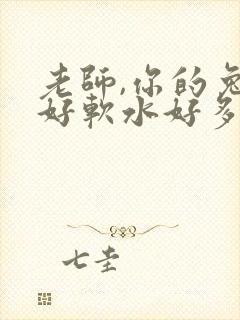 老師,你的兔
好軟水好多
七圭